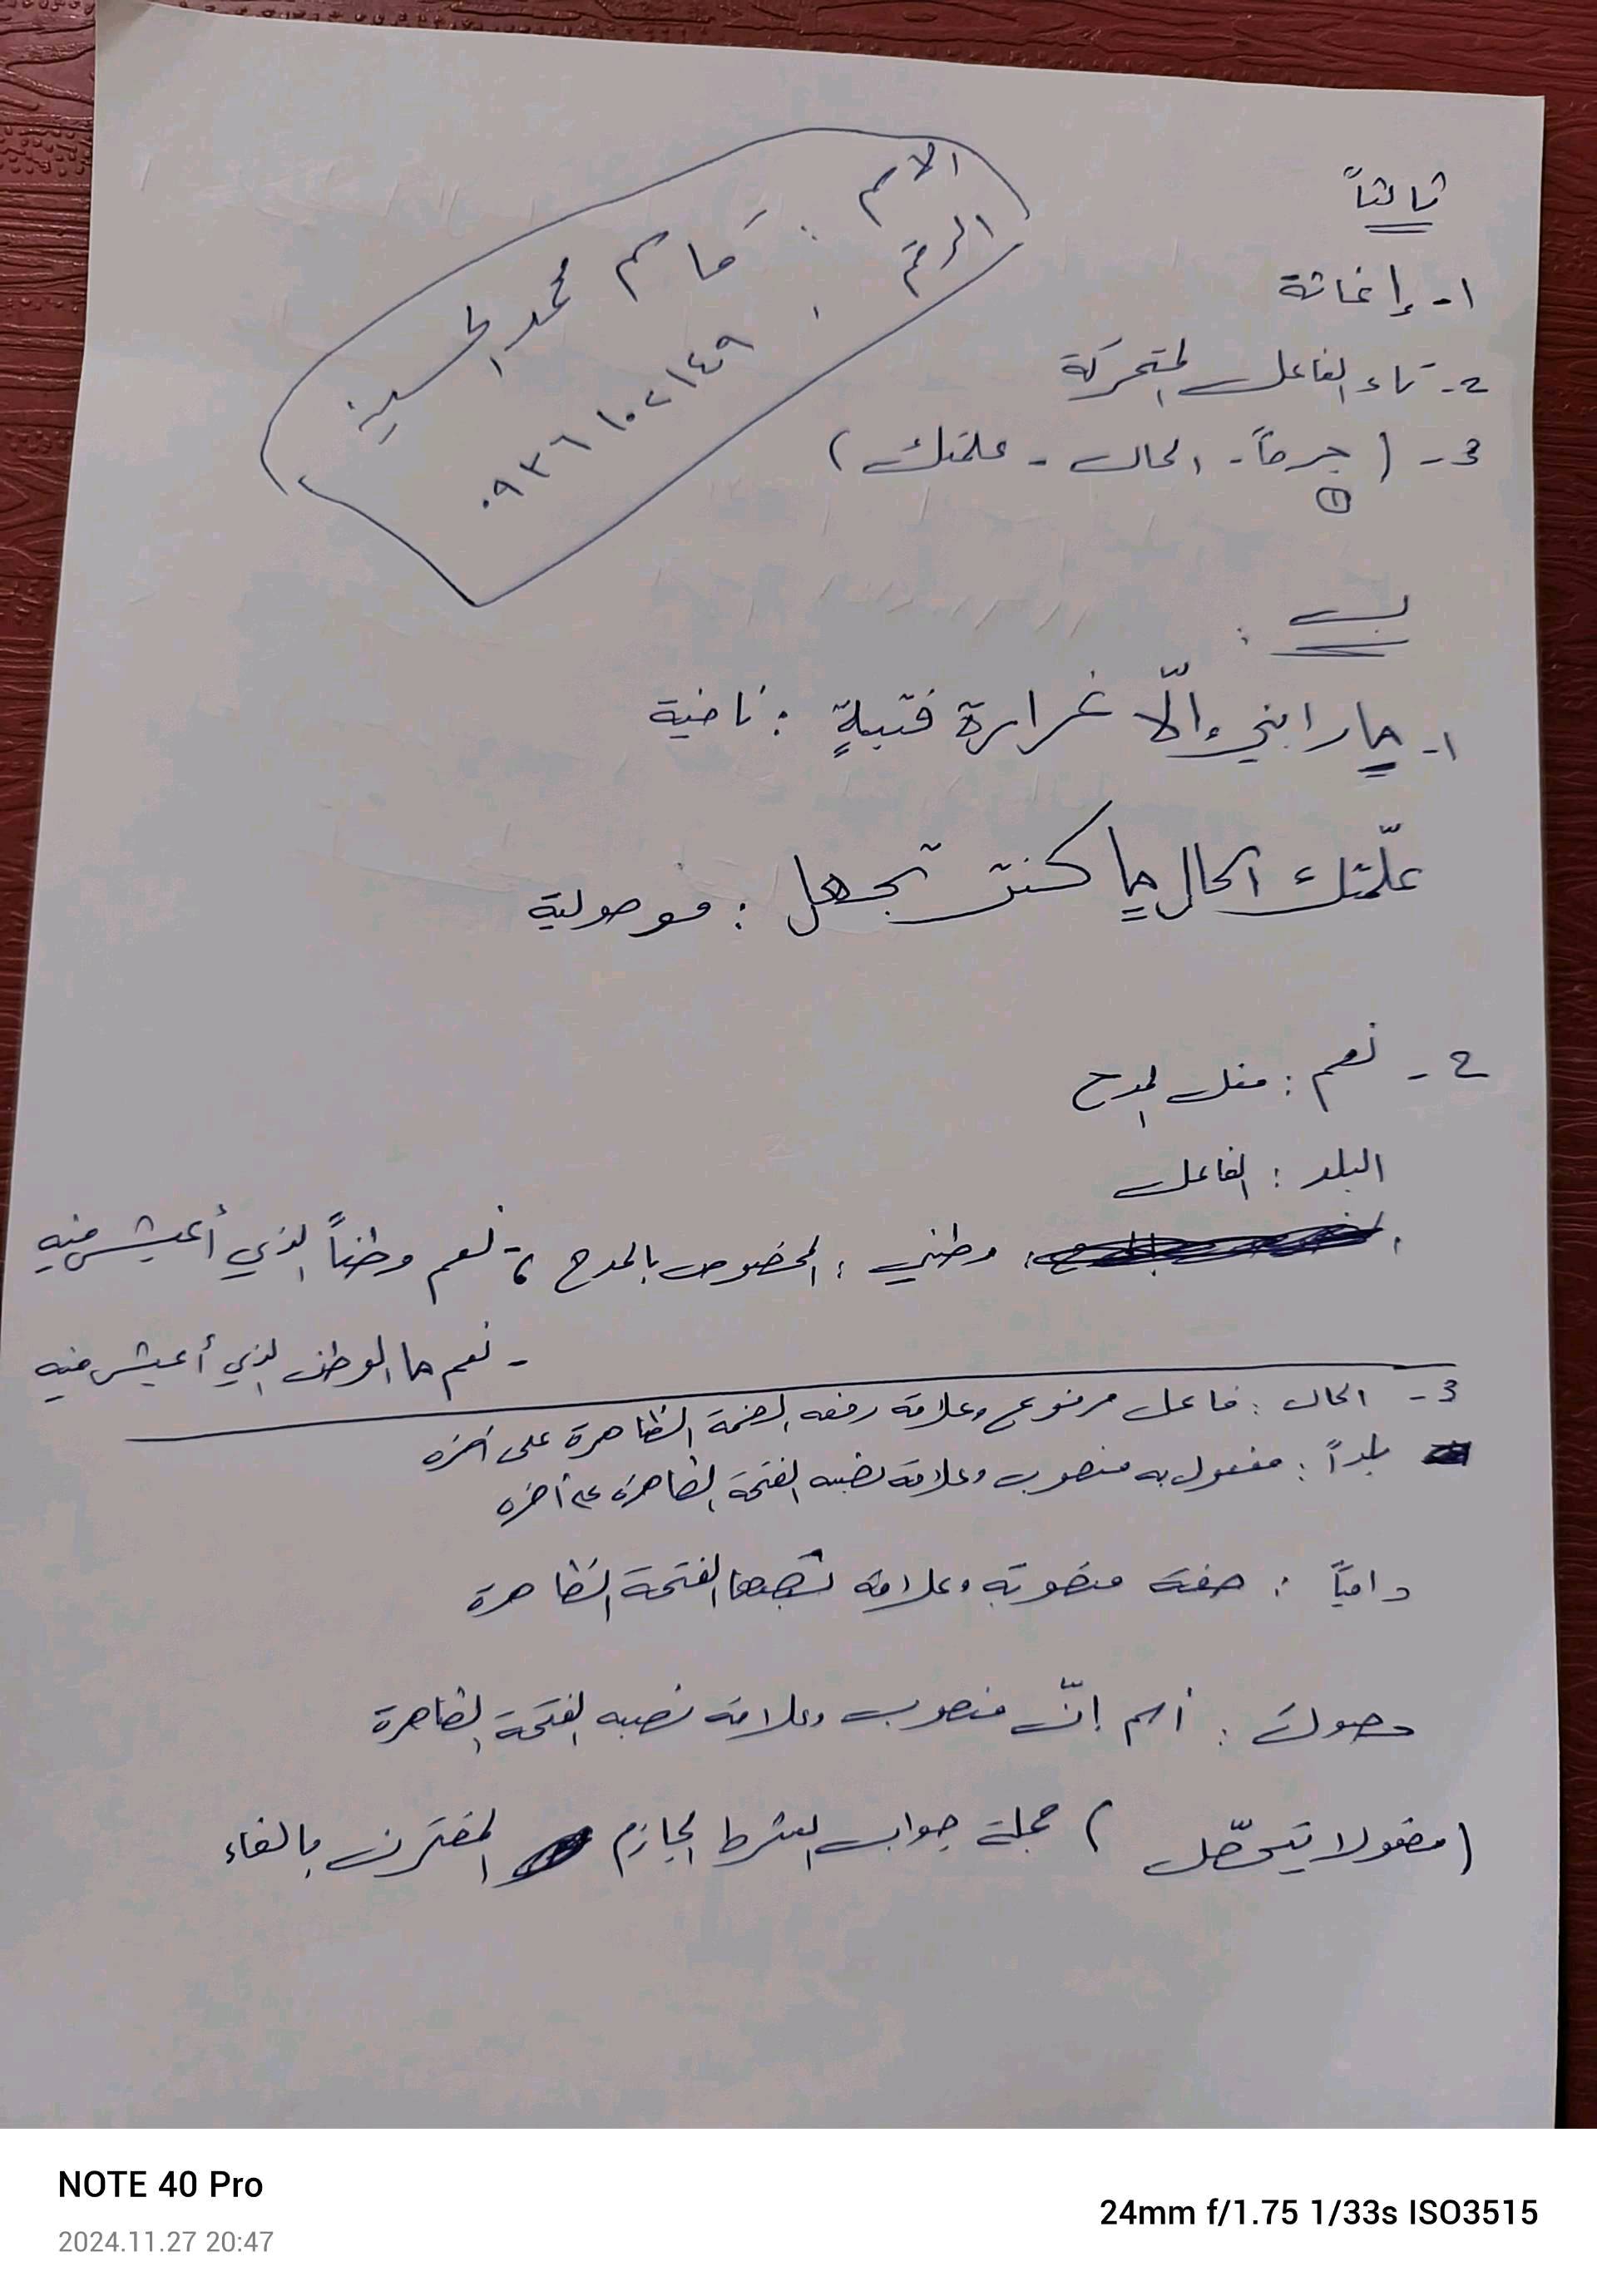 ثالثاً
الاسم : قاسم محمد الحسين
الرقم : ٠٩٣٦١٠٢١٤٩
١- إغاثة
2- تاء الفاعل المتحركة
3- (جرحاً - الحال - علمتك)
①
ب :
١- ما رابني إلّا غرارة فتيةٍ : نافية
علّمتك الحال ما كنت تجهل : موصولية
2- نعم : فعل المدح
البلد : الفاعل
وطني : المخصوص بالمدح ، - نعم وطناً الذي أعيش فيه
- نعم ما الوطن الذي أعيش فيه
3- الحال : فاعل مرفوع وعلامة رفعه الضمة الظاهرة على آخره
بلداً : مفعول به منصوب وعلامة نصبه الفتحة الظاهرة على آخره
دامياً : صفة منصوبة وعلامة نصبها الفتحة الظاهرة
صوت : اسم إنّ منصوب وعلامة نصبه الفتحة الظاهرة
( يتحصّل ) جملة جواب الشرط الجازم المقترن بالفاء
NOTE 40 Pro
2024.11.27 20:47
24mm f/1.75 1/33s ISO3515